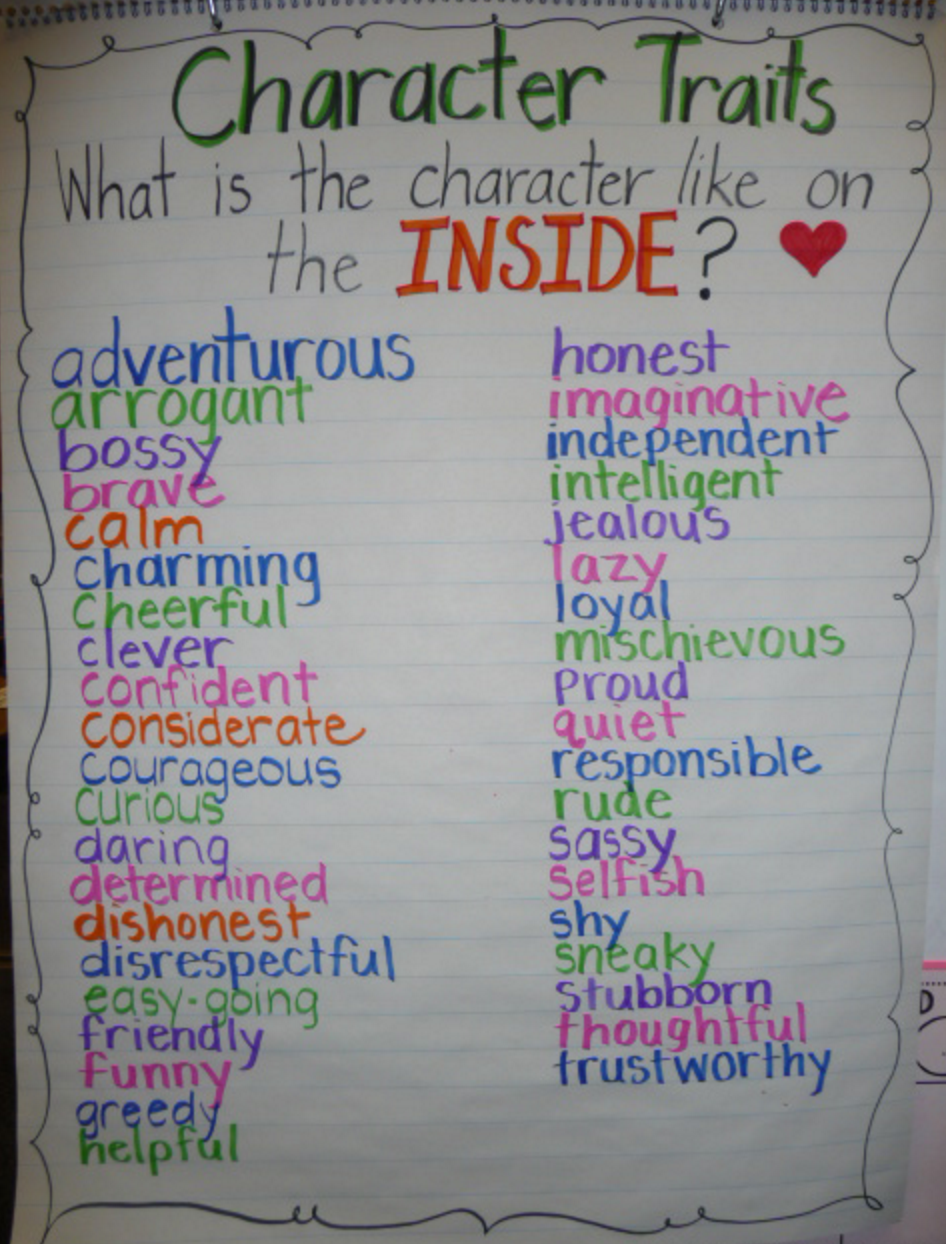 Character Traits
What is the character like on
the INSIDE?
adventurous
arrogant
bossy
brave
calm
charming
cheerful
clever
confident
considerate
courageous
curious
daring
determined
dishonest
disrespectful
easy-going
friendly
funny
greedy
helpful
honest
imaginative
independent
intelligent
jealous
lazy
loyal
mischievous
proud
quiet
responsible
rude
sassy
selfish
shy
sneaky
stubborn
thoughtful
trustworthy